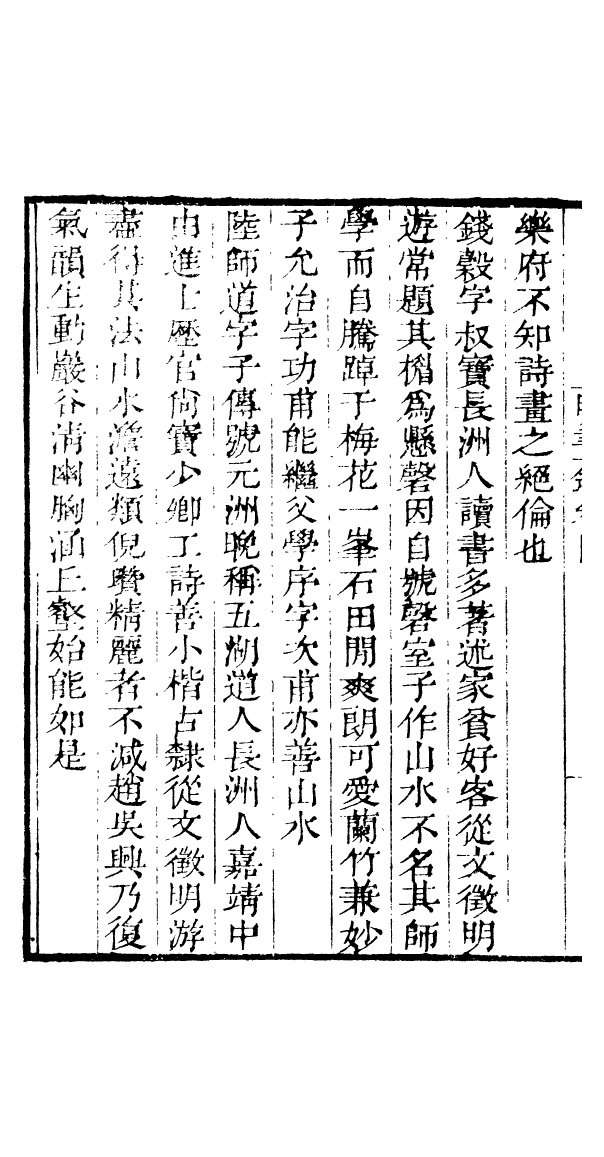 樂府不知詩畫之絕倫也
錢穀字叔寶長洲人讀書多著述家貧好客從文徵明
遊常題其楣爲懸磬因自號磬室子作山水不名其師
學而自騰踔于梅花一峯石田閒爽朗可愛蘭竹兼妙
子允治字功甫能繼父學序字次甫亦善山水
陸師道字子傳號元洲晚稱五湖道人長洲人嘉靖中
由進士歷官尙寶少卿工詩善小楷古隸從文徵明游
盡得其法山水澹遠類倪瓚精麗者不減趙吳興乃復
氣韻生動巖谷淸幽胸涵丘壑始能如是